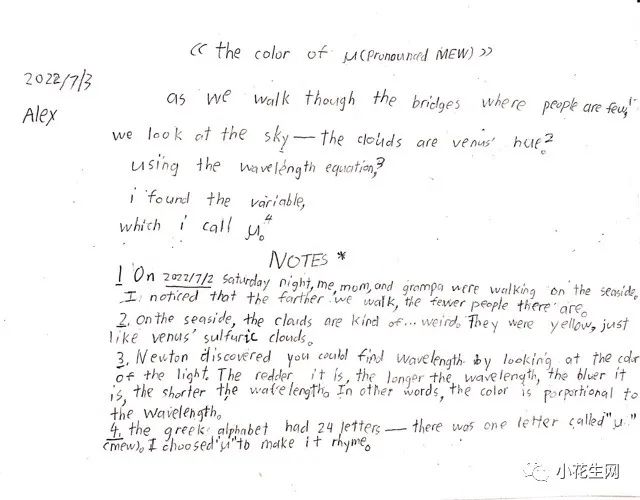 《 the color of μ(pronounced MEW) 》
2022/7/3
Alex
as we walk though the bridges where people are few,¹
we look at the sky — the clouds are venus' hue.²
using the wavelength equation,³
i found the variable,
which i call μ.⁴
NOTES *
1 On 2022/7/2 saturday night, me, mom, and grampa were walking on the seaside.
I noticed that the farther we walk, the fewer people there are.
2. On the seaside, the clouds are kind of... weird. They were yellow, just
like venus' sulfuric clouds.
3. Newton discovered you could find wavelength by looking at the color
of the light. The redder it is, the longer the wavelength, the bluer it
is, the shorter the wavelength. In other words, the color is porportional to
the wavelength.
4. the greek alphabet had 24 letters — there was one letter called "μ"
(mew). I choosed "μ" to make it rhyme.
小花生网